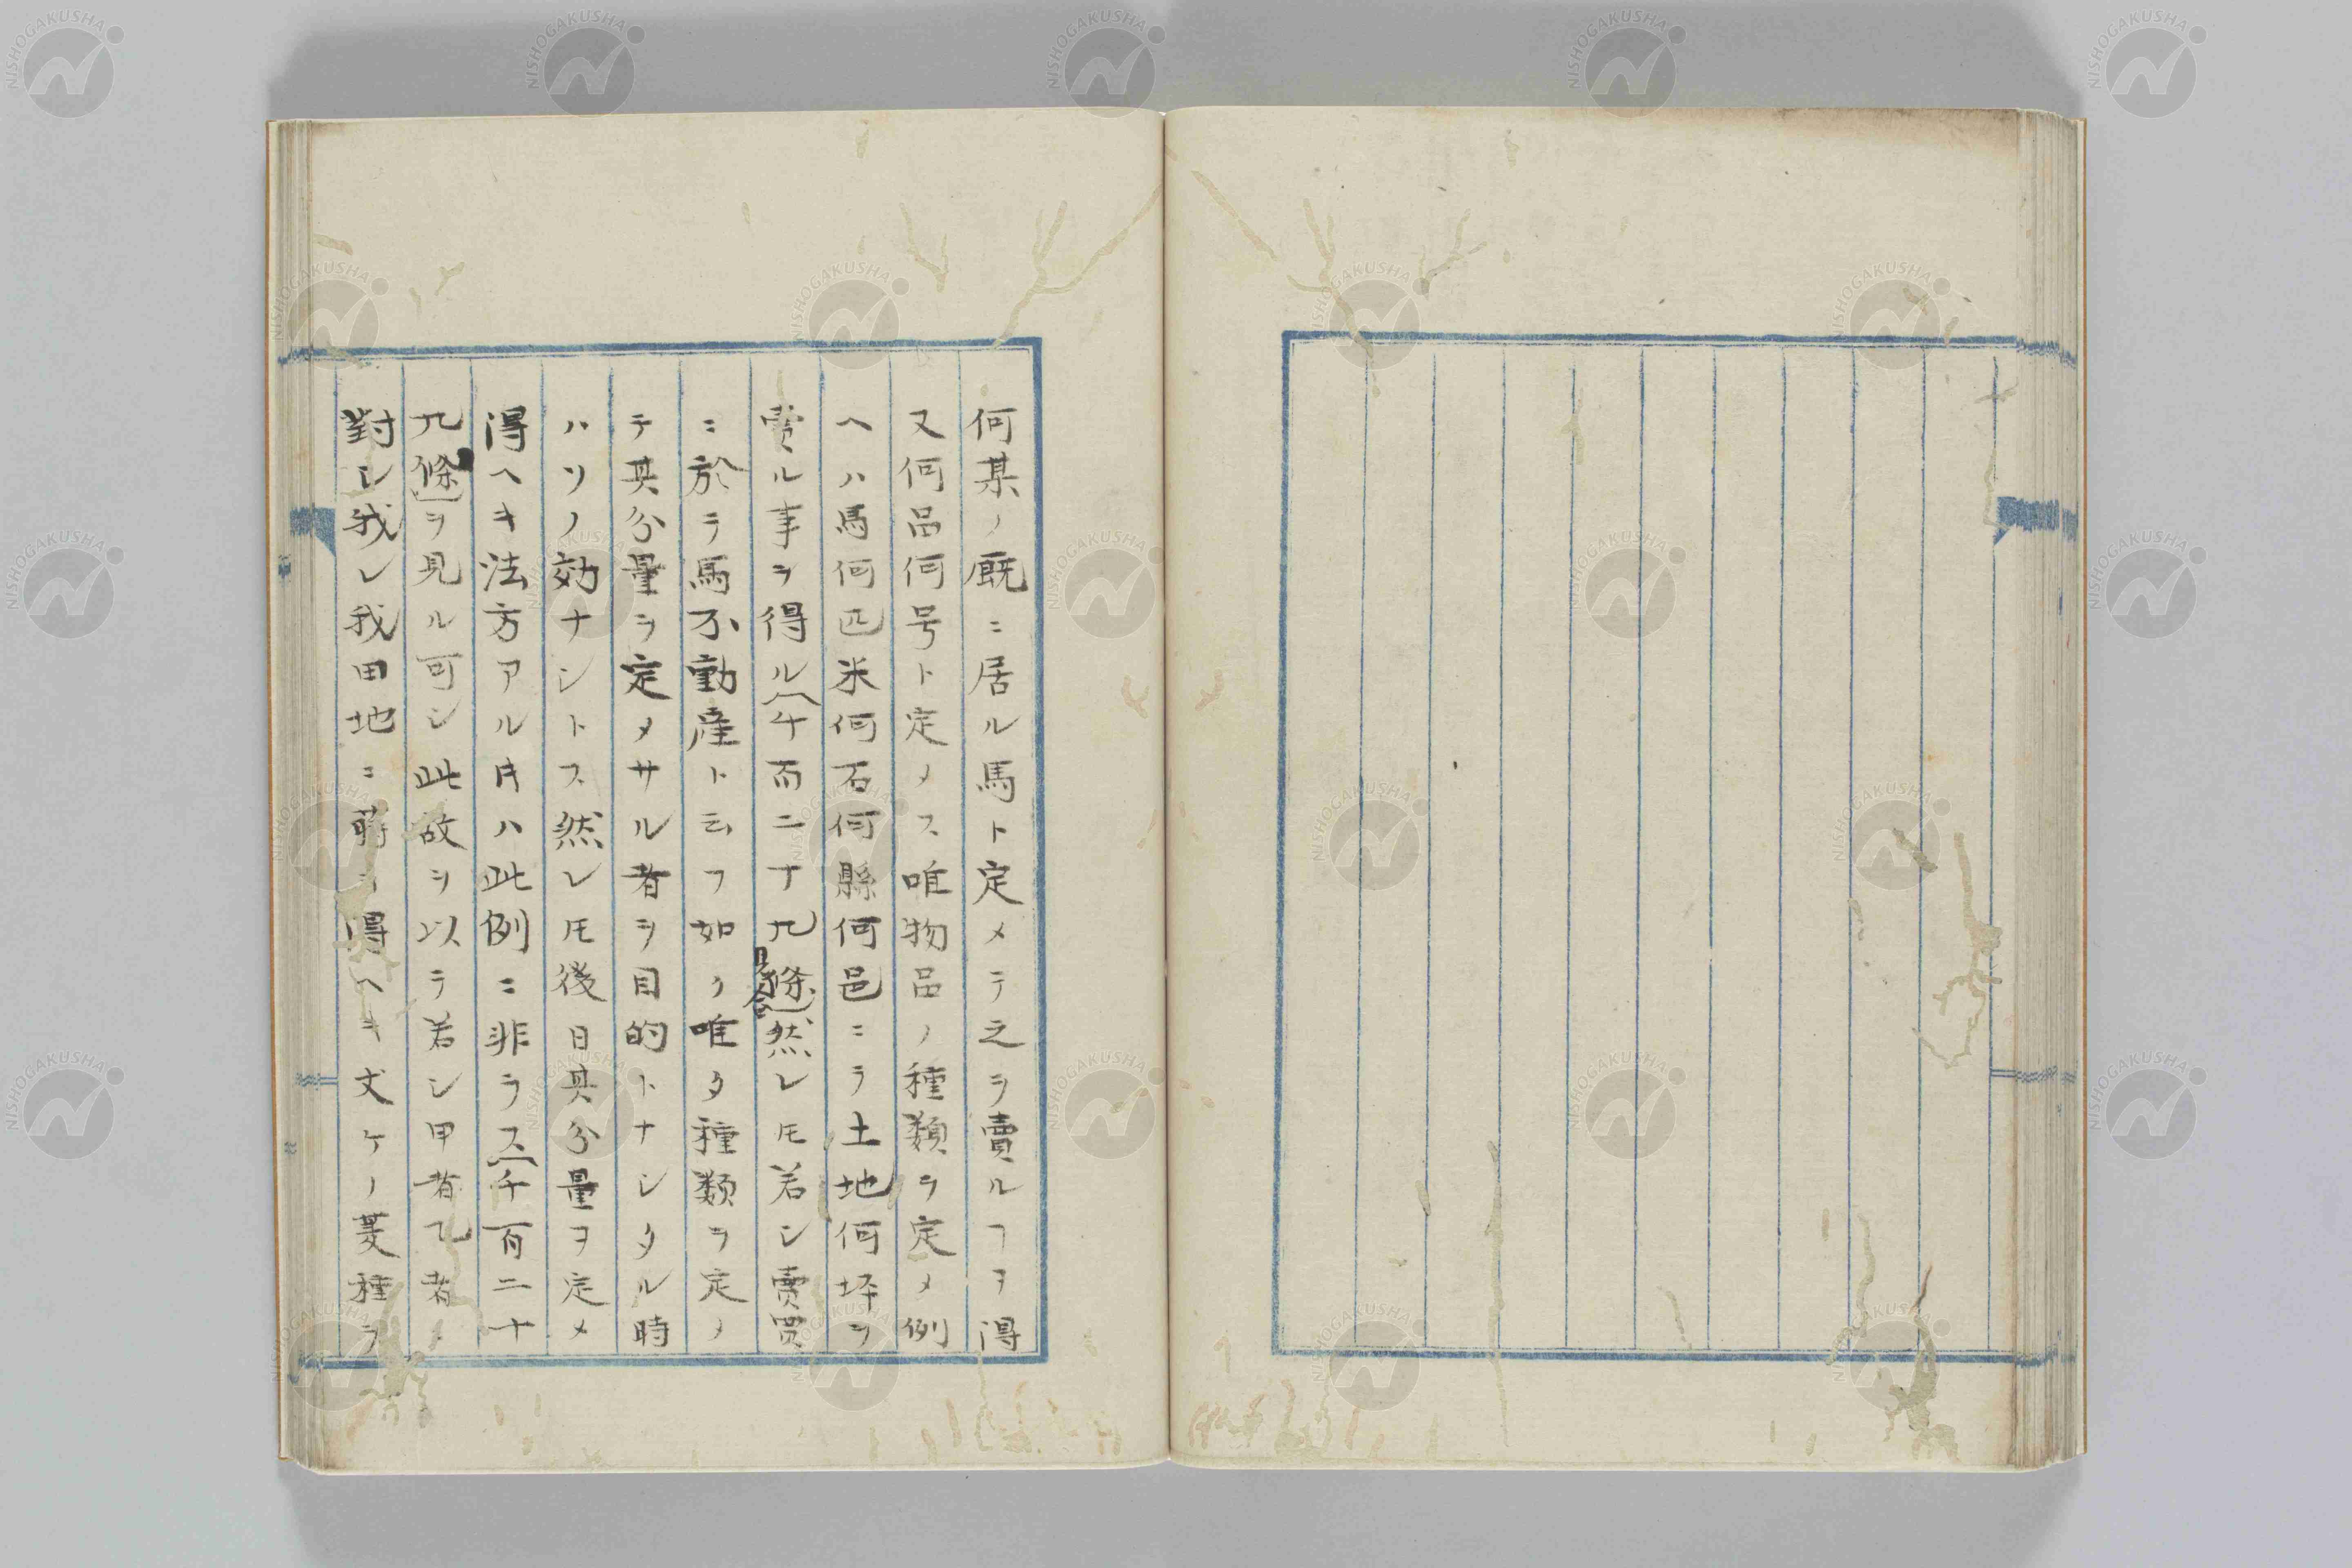 何某ノ厩ニ居ル馬ト定メテ之ヲ賣ルヿヲ得
又何品何号ト定メス唯物品ノ種類ヲ定メ例
ヘハ馬何匹米何石何縣何邑ニテ土地何坪ヲ
賣ル事ヲ得ル(千而二十九條)見合然レ𪜈若シ賣買
ニ於テ馬不動産ト云フ如ク唯タ種類ヲ定メ
テ其分量ヲ定メサル者ヲ目的トナシタル時
ハソノ効ナシトス然レ𪜈後日其分量ヲ定メ
得ヘキ法方アル片ハ此例ニ非ラス(千百二十
九條)ヲ見ル可シ此故ヲ以テ若シ甲者乙者ノ
對シ我レ我田地ニ蒔ヲ得ヘキ丈ケノ麦種ヲ
NISHOGAKUSHA